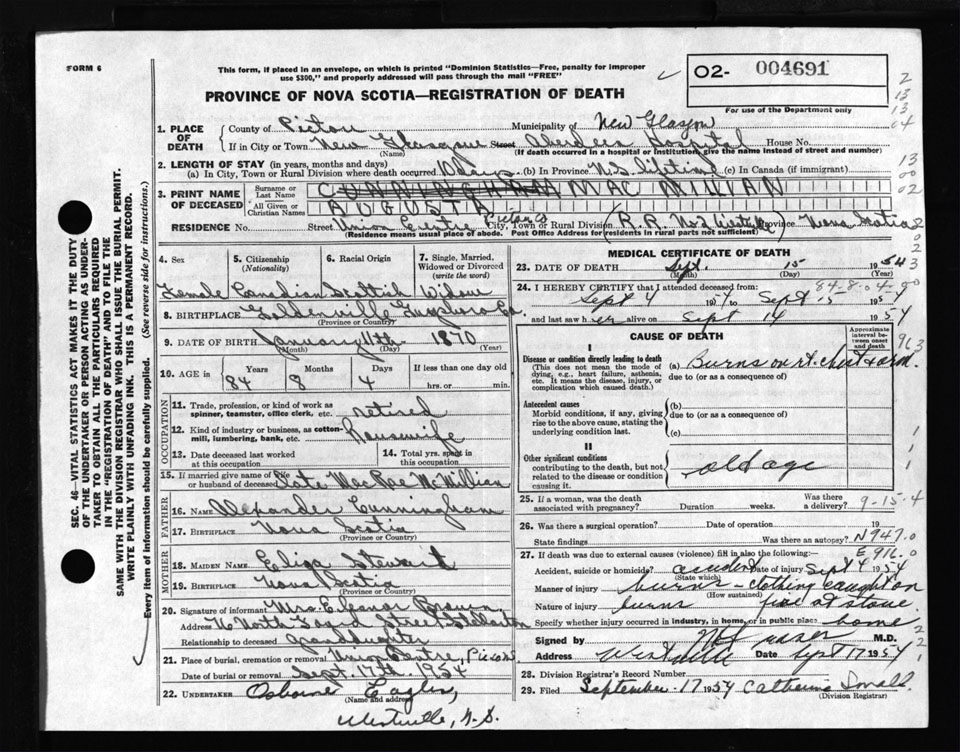 FORM 6
This form, if placed in an envelope, on which is printed "Dominion Statistics—Free, penalty for improper
use $300," and properly addressed will pass through the mail "FREE"
02- 004691
For use of the Department only
PROVINCE OF NOVA SCOTIA—REGISTRATION OF DEATH
1. PLACE OF DEATH
County of Pictou Municipality of New Glasgow
If in City or Town New Glasgow Street Aberdeen Hospital House No.
(Name) (If death occurred in a hospital or institution, give the name instead of street and number)
2. LENGTH OF STAY (in years, months and days)
(a) In City, Town or Rural Division where death occurred 10 days (b) In Province N.S. lifetime (c) In Canada (if immigrant)
3. PRINT NAME OF DECEASED
Surname or Last Name CUNNINGHAM MAC MILLAN
All Given or Christian Names AUGUSTA
RESIDENCE No. Street Union Centre Pictou Co City, Town or Rural Division (R.R. No 2 Westville Province Nova Scotia
(Residence means usual place of abode. Post Office Address for residents in rural parts not sufficient)
4. Sex
5. Citizenship (Nationality)
6. Racial Origin
7. Single, Married, Widowed or Divorced (write the word)
Female Canadian Scottish Widow
8. BIRTHPLACE Goldenville Guysboro Co.
(Province or Country)
9. DATE OF BIRTH January 11th 1870
(Month) (Day) (Year)
10. AGE in Years Months Days If less than one day old
84 8 4 hrs. or min.
OCCUPATION
11. Trade, profession, or kind of work as spinner, teamster, office clerk, etc. retired
12. Kind of industry or business, as cotton-mill, lumbering, bank, etc. Housewife
13. Date deceased last worked at this occupation
14. Total yrs. spent in this occupation
15. If married give name of wife or husband of deceased Pete MacRae McMillian
FATHER
16. Name Alexander Cunningham
17. Birthplace Nova Scotia
(Province or Country)
MOTHER
18. MAIDEN NAME Eliza Stewart
19. BIRTHPLACE Nova Scotia
(Province or Country)
20. Signature of informant Mrs. Eleanor Brown
Address 16 North Foord Street Stellarton
Relationship to deceased granddaughter
21. Place of burial, cremation or removal Union Centre, Pictou
Date of burial or removal Sept. 1954
22. UNDERTAKER Osborne Eagles
(Name and address)
Westville, N.S.
MEDICAL CERTIFICATE OF DEATH
23. DATE OF DEATH Sept. 15 1954
(Month) (Day) (Year)
24. I HEREBY CERTIFY that I attended deceased from:
84-8-04-
Sept 4 1954 to Sept 15 1954
and last saw her alive on Sept 14 1954
CAUSE OF DEATH
Approximate interval between onset and death
I
Disease or condition directly leading to death
(This does not mean the mode of dying, e.g., heart failure, asthenia, etc. It means the disease, injury, or complication which caused death.)
(a) Burns on rt. chest & arm.
due to (or as a consequence of)
Antecedent causes
Morbid conditions, if any, giving rise to the above cause, stating the underlying condition last.
(b)
due to (or as a consequence of)
(c)
II
Other significant conditions
contributing to the death, but not related to the disease or condition causing it.
old age
25. If a woman, was the death associated with pregnancy? Duration weeks. Was there a delivery?
9-15-4
26. Was there a surgical operation? Date of operation 19
State findings Was there an autopsy?
N947.0
27. If death was due to external causes (violence) fill in also the following:
E 916.0
Accident, suicide or homicide? accident Date of injury Sept 4 1954
(State which)
Manner of injury burns - clothing caught on
(How sustained)
Nature of injury burns fire at stove
Specify whether injury occurred in industry, in home, or in public place. home
Signed by M.D.
Address Westville Date Sept 17 1954
28. Division Registrar's Record Number
29. Filed September 17 1954 Catherine Small.
(Division Registrar)
SEC. 46—VITAL STATISTICS ACT MAKES IT THE DUTY
OF THE UNDERTAKER OR PERSON ACTING AS UNDER-
TAKER TO OBTAIN ALL THE PARTICULARS REQUIRED
IN THE "REGISTRATION OF DEATH" AND TO FILE THE
SAME WITH THE DIVISION REGISTRAR WHO SHALL ISSUE THE BURIAL PERMIT.
WRITE PLAINLY WITH UNFADING INK. THIS IS A PERMANENT RECORD.
Every item of information should be carefully supplied. (See reverse side for instructions.)